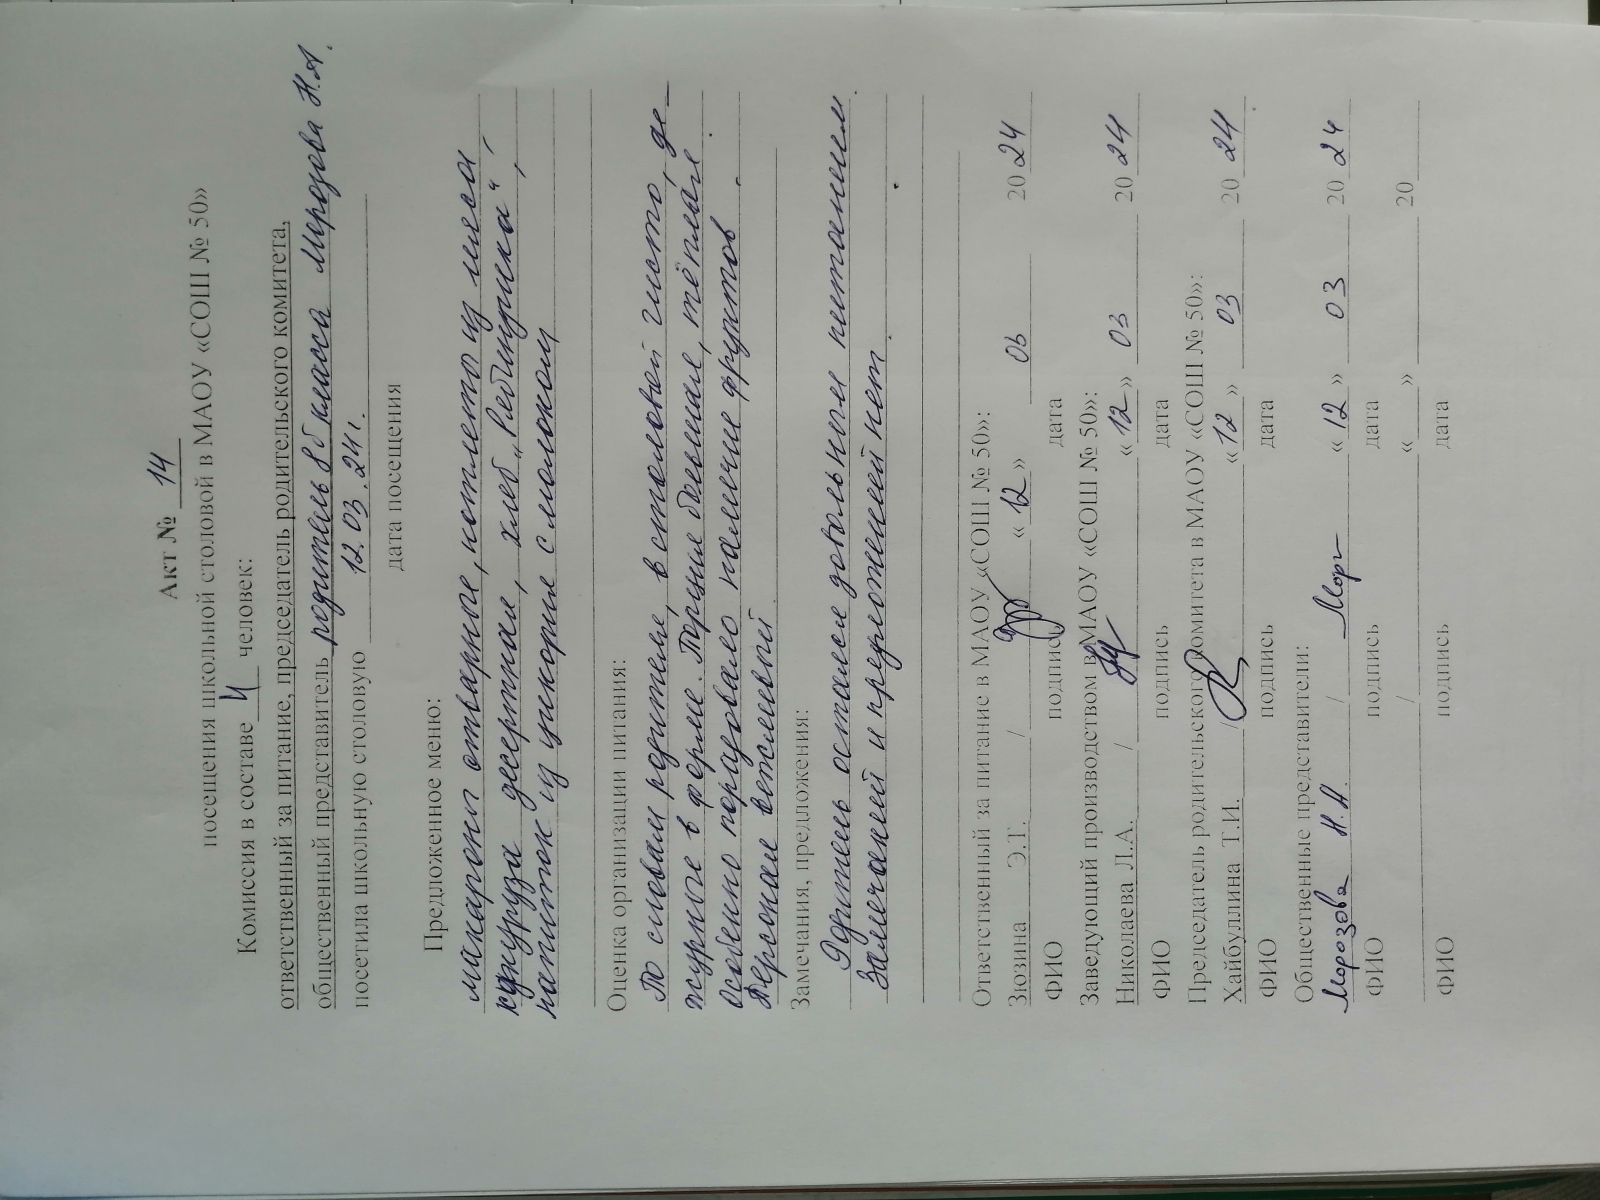 Акт № 14
посещения школьной столовой в МАОУ «СОШ № 50»
Комиссия в составе 4 человек:
ответственный за питание, председатель родительского комитета,
общественный представитель родитель 8б класса Морозова Н.А.
посетила школьную столовую 12.03.24г.
дата посещения
Предложенное меню:
макароны отварные, котлета из мяса
кукуруза десертная, хлеб „
напиток из цикория с молоком
Оценка организации питания:
По словам родителя, в столовой чисто, де-
журные в форме. Порции большие, тёплые.
Особенно порадовало наличие фруктов.
Персонал вежливый
Замечания, предложения:
Родитель остался довольны питанием.
Замечаний и предложений нет.
Ответственный за питание в МАОУ «СОШ № 50»:
Зюзина Э.Т. / «12» 03 2024
ФИО подпись дата
Заведующий производством в МАОУ «СОШ № 50»:
Николаева Л.А. / «12» 03 2024
ФИО подпись дата
Председатель родительского комитета в МАОУ «СОШ № 50»:
Хайбуллина Т.И. / «12» 03 2024
ФИО подпись дата
Общественные представители:
Морозова Н.А. / «12» 03 2024
ФИО подпись дата
/ « » 20
ФИО подпись дата